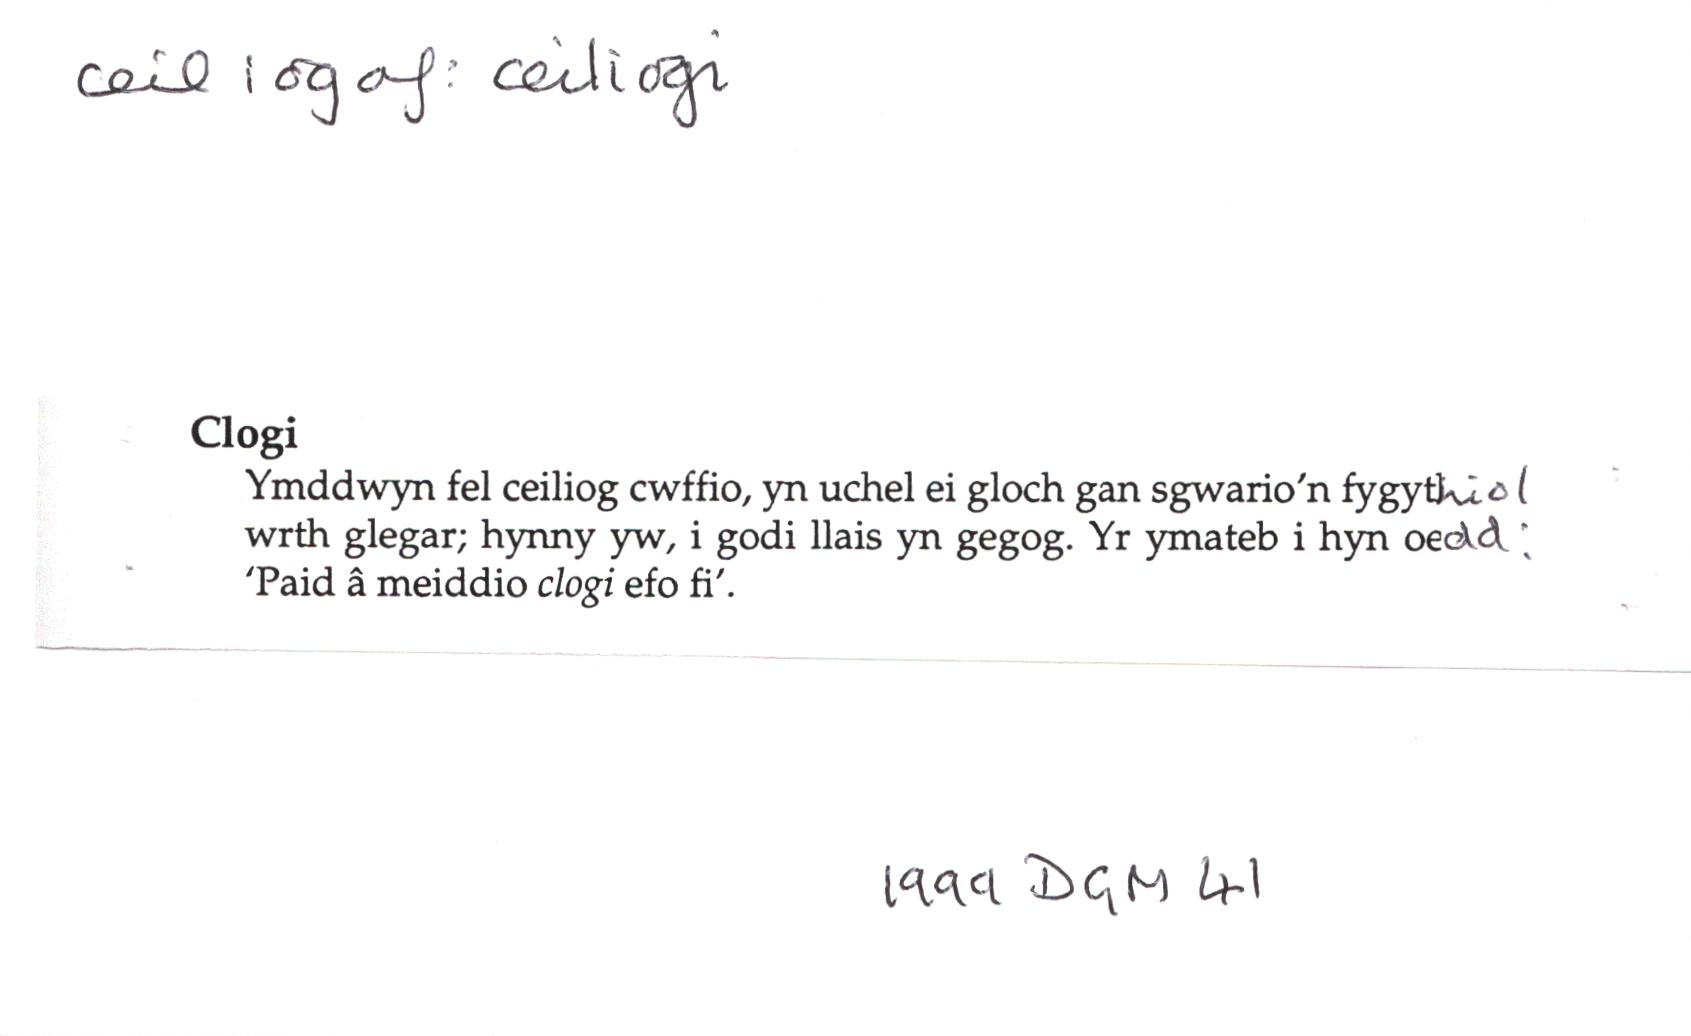 ceiliogaf: ceiliogi
Clogi
Ymddwyn fel ceiliog cwffio, yn uchel ei gloch gan sgwario'n fygythiol
wrth glegar; hynny yw, i godi llais yn gegog. Yr ymateb i hyn oedd:
'Paid â meiddio clogi efo fi'.
1999 DGM 41